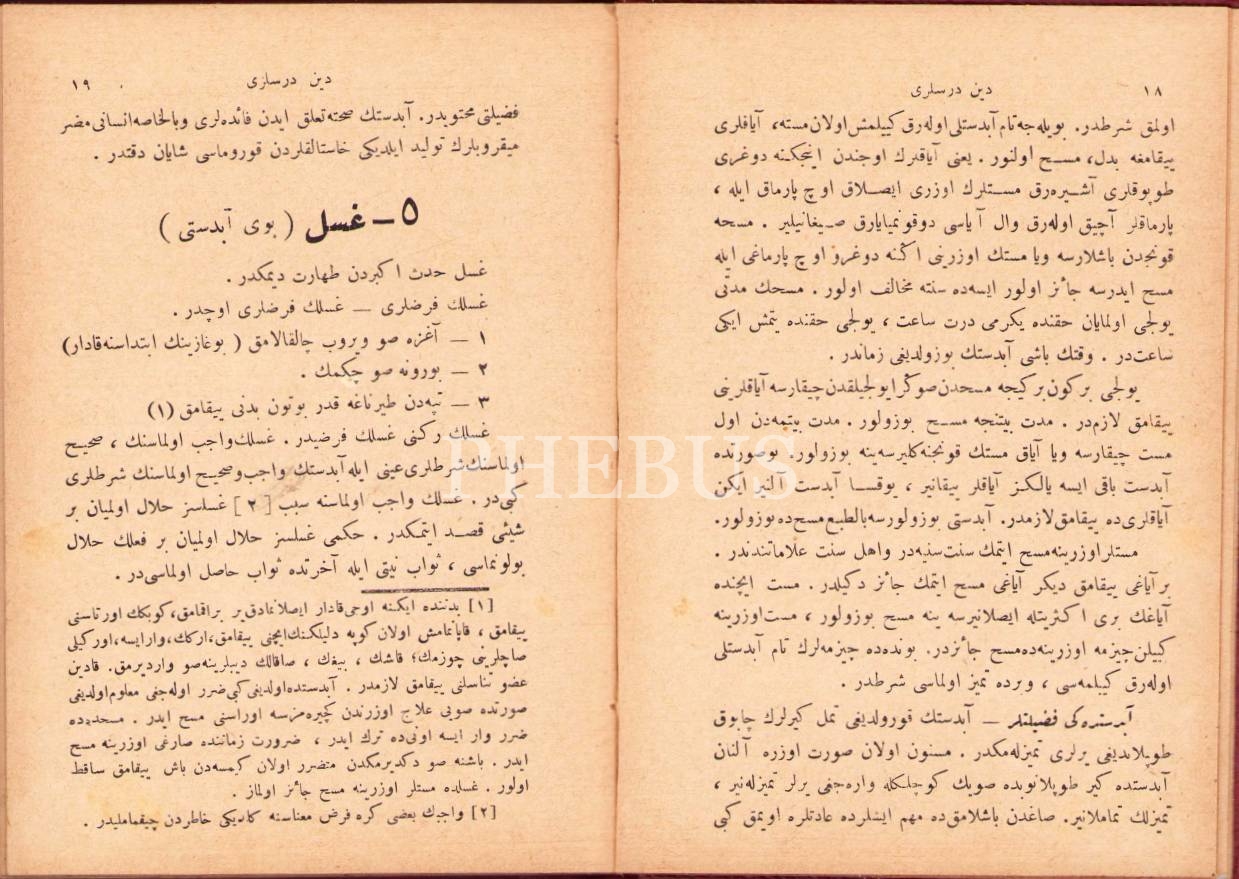 ١٨
دين درسلرى
اولمق شرطدر. بويله‌جه تام آبدستلى اوله‌رق كييلمش اولان مسته، آياقلرى
ييقامغه بدل، مسح اولنور . يعنى آياقلرك اوجندن اينجكنه دوغرى
طوپوقلرى آشيره‌رق مستلرك اوزرى ايصلاق اوچ پارماق ايله ،
پارماقلر آچيق اوله‌رق وال آياسى دوقونمايارق صيغانيلير . مسحه
قونجدن باشلارسه ويا مستك اوزرينى اكنه دوغرو اوچ پارماغى ايله
مسح ايدرسه جائز اولور ايسه‌ده سنته مخالف اولور . مسحك مدتى
يولجى اولمايان حقنده يكرمى درت ساعت ، يولجى حقنده يتمش ايكى
ساعت‌در . وقتك باشى آبدستك بوزولديغى زماندر .
يولجى بركون بركيجه مسحدن صوكرا يولجيلقدن چيقارسه آياقلرينى
ييقامق لازم‌در . مدت بيتنجه مسح بوزولور . مدت بيتمه‌دن اول
مست چيقارسه ويا آياق مستك قونجنه كليرسه ينه بوزولور. بوصورتده
آبدست باقى ايسه يالكز آياقلر ييقانير ، يوقسا آبدست آلنير ايكن
آياقلرى‌ده ييقامق لازمدر. آبدستى بوزولورسه بالطبع مسح‌ده بوزولور.
مستلر اوزرينه مسح ايتمك سنت سنيه‌در واهل سنت علاماتندندر .
بر آياغى ييقامق ديكر آياغى مسح ايتمك جائز دكيلدر. مست ايچنده
آياغك برى اكثريتله ايصلانيرسه ينه مسح بوزولور ، مست اوزرينه
كييلن چيزمه اوزرينه‌ده مسح جائزدر. بونده‌ده چيزمه‌لرك تام آبدستلى
اوله‌رق كييلمه‌سى ، وبرده تميز اولماسى شرطدر .
آبدستده‌كى فضيلتلر — آبدستك قورولديغى تمل كيرلرك چابوق
طوپلانديغى يرلرى تميزله‌مكدر . مسنون اولان صورت اوزره آلنان
آبدستده كير طوپلانوبده صويك كوچلكله واره‌جغى يرلر تميزله‌نير ،
تميزلك تماملانير. صاغدن باشلامق‌ده مهم ايشلرده عادتلره اويمق كبى
١٩
دين درسلرى
فضيلتى محتويدر. آبدستك صحته تعلق ايدن فائده‌لرى وبالخاصه انسانى مضر
ميقروبلرك توليد ايلديكى خاستالقلردن قوروماسى شايان دقتدر .
٥ ـ غسل ( بوى آبدستى )
غسل حدث اكبردن طهارت ديمكدر .
غسلك فرضلرى — غسلك فرضلرى اوچدر .
١ — آغزه صو ويروب چالقالامق ( بوغازينك ابتداسنه قادار)
٢ — بورونه صو چكمك .
٣ — تپه‌دن طيرناغه قدر بوتون بدنى ييقامق (١)
غسلك ركنى غسلك فرضيدر. غسلك واجب اولماسنك ، صحيح
اولماسنك شرطلرى عينى ايله آبدستك واجب وصحيح اولماسنك شرطلرى
كبى‌در . غسلك واجب اولماسنه سبب [٢] غسلسز حلال اولميان بر
شيئى قصد ايتمكدر . حكمى غسلسز حلال اولميان بر فعلك حلال
بولونماسى ، ثواب نيتى ايله آخرتده ثواب حاصل اولماسى‌در .
[١] بدننده ايكنه اوجى قادار ايصلانمادق ير براقمامق، كوبكك اورتاسنى
ييقامق ، قاپانمامش اولان كوپه دليكلكنك ايچنى ييقامق، اركك، وارايسه، اوركيلى
صاچلرينى چوزمك؛ قاشك ، بيغك ، صاقالك ديبلرينه صو وارديرمق. قادين
عضو تناسلنى ييقامق لازمدر . آبدستده اولديغى كبى ضرر اوله‌جغى معلوم اولديغى
صورتده صويى علاج اوزرندن كچيره‌مزسه اوراسنى مسح ايدر . مسحده‌ده
ضرر وار ايسه اونى‌ده ترك ايدر ، ضرورت زماننده صارغى اوزرينه مسح
ايدر . باشنه صو دكديرمكدن متضرر اولان كيمسه‌دن باش ييقامق ساقط
اولور . غسلده مستلر اوزرينه مسح جائز اولماز .
[٢] واجبك بعضى كره فرض معناسنه كلديكى خاطردن چيقمامليدر .
PHEBUS